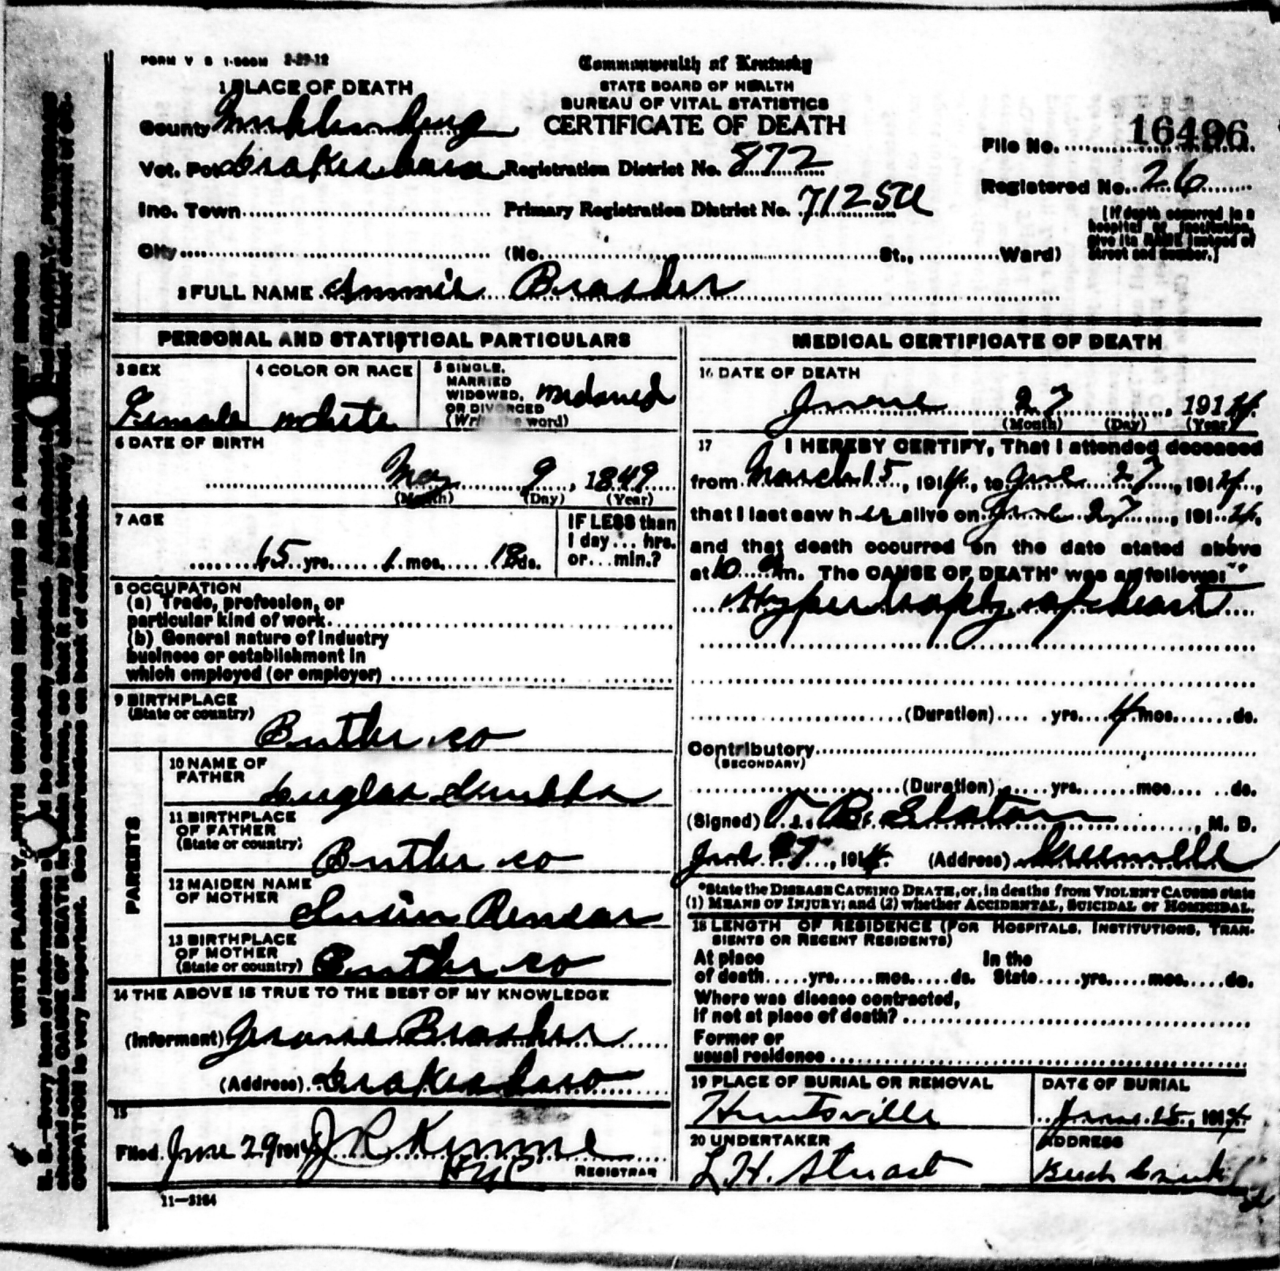 FORM V S 1-500M 2-29-12
Commonwealth of Kentucky
STATE BOARD OF HEALTH
BUREAU OF VITAL STATISTICS
CERTIFICATE OF DEATH
1 PLACE OF DEATH
County Muhlenberg
Vot. Pct Drakesboro Registration District No. 872
Inc. Town Primary Registration District No. 7125
City (No. St., Ward)
File No. 16496
Registered No. 26
(If death occurred in a
hospital or institution,
give its NAME instead of
street and number.)
2 FULL NAME Annie Brasher
PERSONAL AND STATISTICAL PARTICULARS
3 SEX
Female
4 COLOR OR RACE
white
5 SINGLE,
MARRIED
WIDOWED,
OR DIVORCED
(Write the word)
widowed
6 DATE OF BIRTH
May 9, 1849
(Month) (Day) (Year)
7 AGE
65 yrs. 1 mos. 18 ds.
IF LESS than
1 day... hrs.
or... min.?
8 OCCUPATION
(a) Trade, profession, or
particular kind of work
(b) General nature of industry
business or establishment in
which employed (or employer)
9 BIRTHPLACE
(State or country)
Butler co
PARENTS
10 NAME OF
FATHER
11 BIRTHPLACE
OF FATHER
(State or country)
Butler co
12 MAIDEN NAME
OF MOTHER
13 BIRTHPLACE
OF MOTHER
(State or country)
Butler co
14 THE ABOVE IS TRUE TO THE BEST OF MY KNOWLEDGE
(Informant) Brasher
(Address) Drakesboro
15
Filed June 29 1914 J R Kimmel
REGISTRAR
11-3184
MEDICAL CERTIFICATE OF DEATH
16 DATE OF DEATH
June 27, 1914
(Month) (Day) (Year)
17 I HEREBY CERTIFY, That I attended deceased
from March 15, 1914, to June 27, 1914,
that I last saw her alive on June 27, 1914,
and that death occurred on the date stated above
at 10 m. The CAUSE OF DEATH* was as follows:
Hypertrophy of heart
(Duration) yrs. 4 mos. ds.
Contributory
(SECONDARY)
(Duration) yrs. mos. ds.
(Signed) T. B. Slaton, M. D.
June 27, 1914 (Address) Greenville
*State the DISEASE CAUSING DEATH, or, in deaths from VIOLENT CAUSES state
(1) MEANS OF INJURY; and (2) whether ACCIDENTAL, SUICIDAL or HOMICIDAL.
18 LENGTH OF RESIDENCE (FOR HOSPITALS, INSTITUTIONS, TRAN-
SIENTS OR RECENT RESIDENTS)
At place In the
of death yrs. mos. ds. State yrs. mos. ds.
Where was disease contracted,
if not at place of death?
Former or
usual residence
19 PLACE OF BURIAL OR REMOVAL
Huntsville
DATE OF BURIAL
June 28, 1914
20 UNDERTAKER
L H. Stuart
ADDRESS